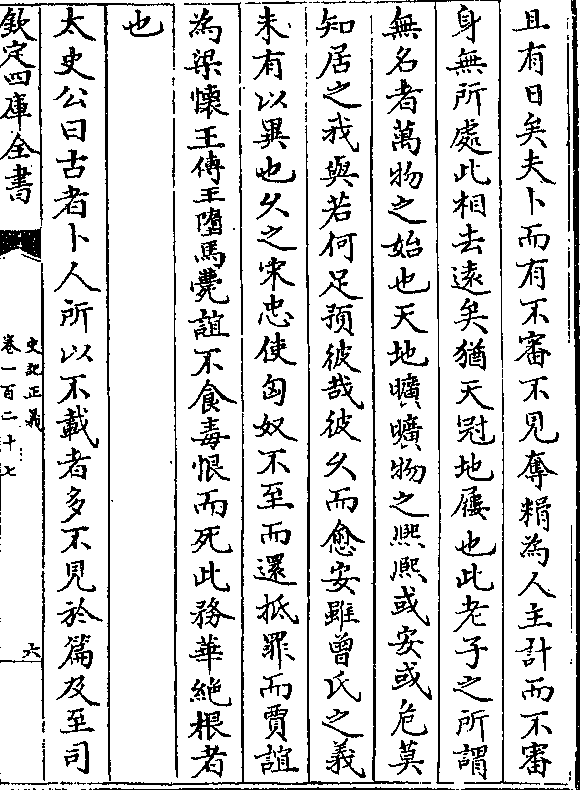 且有日矣夫卜而有不審不見奪糈為人主計而不審
身無所處此相去遠矣猶天冠地屨也此老子之所謂
無名者萬物之始也天地曠曠物之熙熙或安或危莫
知居之我與若何足預彼哉彼久而愈安雖曾氏之義
未有以異也久之宋忠使匈奴不至而還抵罪而賈誼
為梁懷王傅王墮馬薨誼不食毒恨而死此務華絶根者
也
太史公曰古者卜人所以不載者多不見於篇及至司
欽定四庫全書
史記正義
卷一百二十七
六